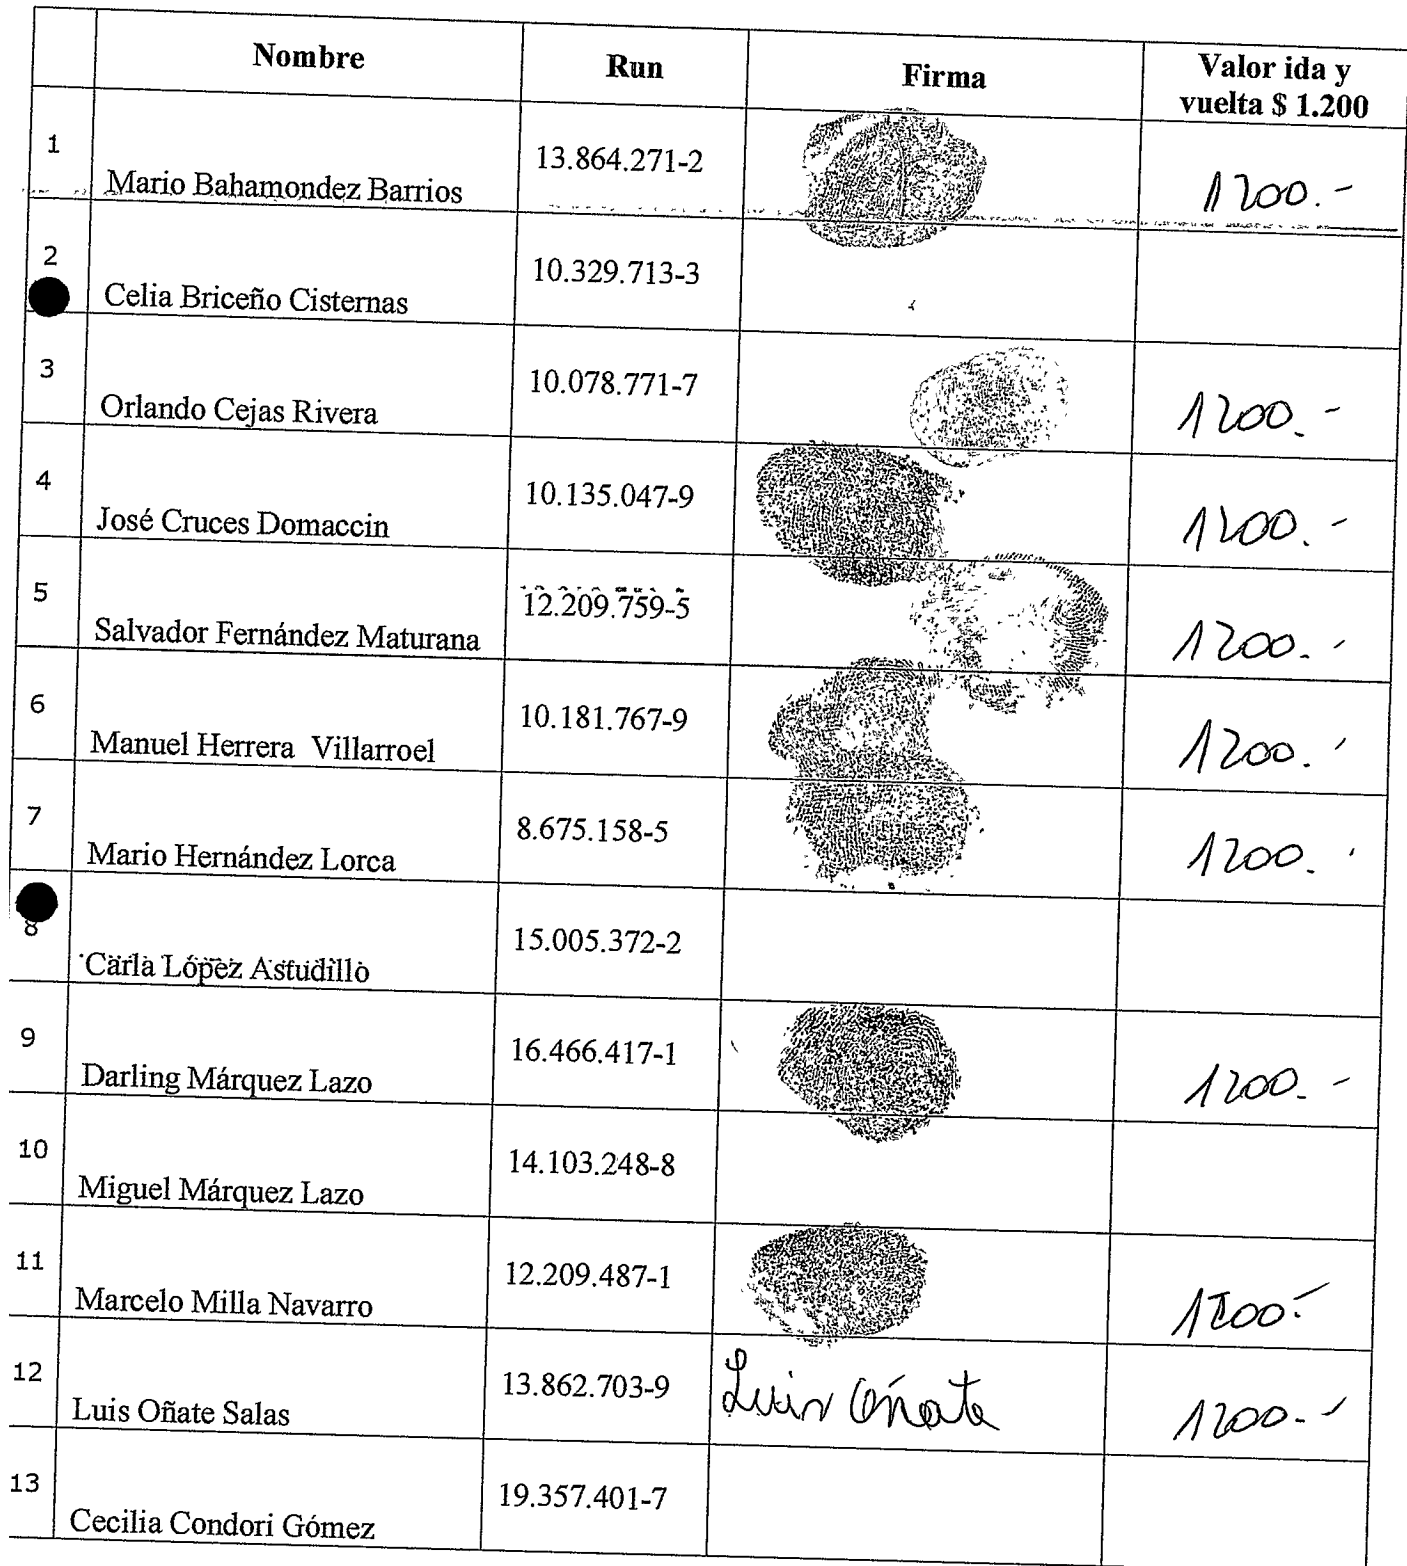 Nombre Run Firma Valor ida y
vuelta $ 1.200
1 Mario Bahamondez Barrios 13.864.271-2 1200.-
2 Celia Briceño Cisternas 10.329.713-3
3 Orlando Cejas Rivera 10.078.771-7 1200.-
4 José Cruces Domaccin 10.135.047-9 1200.-
5 Salvador Fernández Maturana 12.209.759-5 1200.-
6 Manuel Herrera Villarroel 10.181.767-9 1200.-
7 Mario Hernández Lorca 8.675.158-5 1200.
8 Carla López Astudillo 15.005.372-2
9 Darling Márquez Lazo 16.466.417-1 1200.-
10 Miguel Márquez Lazo 14.103.248-8
11 Marcelo Milla Navarro 12.209.487-1 1200.-
12 Luis Oñate Salas 13.862.703-9 Luis Oñate 1200.-
13 Cecilia Condori Gómez 19.357.401-7